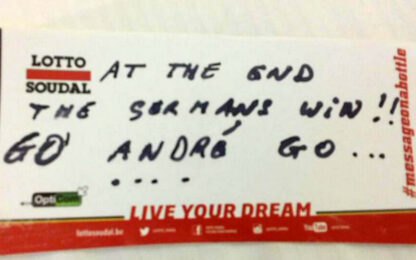 LOTTO
SOUDAL
AT THE END
THE GERMANS WIN!!
GO ANDRÉ GO...
....
#messageonabottle
OptiCom
LIVE YOUR DREAM
lottosoudal.be
YouTube